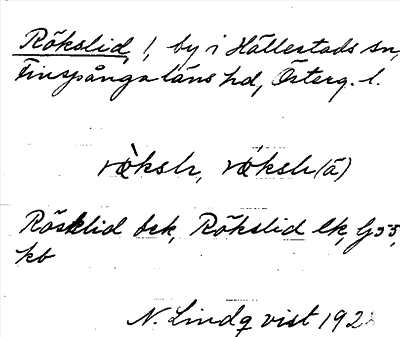 Rökslid, !, by i Hällestads sn,
Finspånga läns hd, Österg. l.
rø̀kslɩ, røkslɩ(a)
Röslid bek, Rökslid lk, Gs5,
kb
N. Lindqvist 192